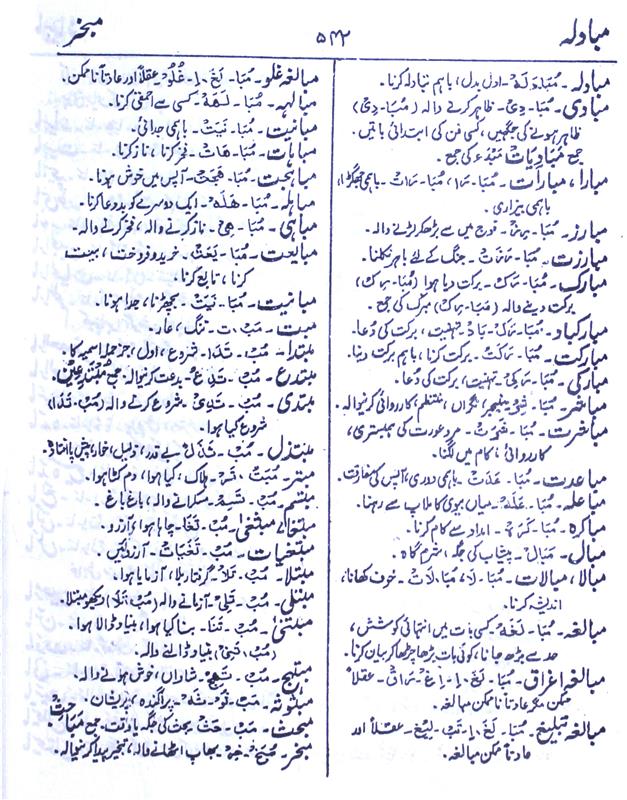 مبادلہ ۵۴۲ مبخر
مبادلہ۔ مُبَا۔دَلَہ۔ ادل بدل، باہم تبادلہ کرنا۔
مبادی۔ مُبَا۔دِی۔ ظاہر کرنے والہ (مُبَا۔دِی)
ظاہر ہونے کی جگہیں، کسی فن کی ابتدائی باتیں۔
جمع مَبَادِیَات مَبْدَء کی جمع۔
مبارا، مبارات۔ مُبَا۔رَا، مُبَا۔رَات۔ باہمی جھگڑا،
باہمی بیزاری۔
مبارز۔ مُبَا۔رِز۔ فوج میں سے بڑھکر لڑنے والہ۔
مبارزت۔ مُبَا۔رَزَت۔ جنگ کے لئے باہر نکلنا۔
مبارک۔ مُبَا۔رَک۔ برکت دیا ہوا (مُبَا۔رِک)،
برکت دینے والہ (مَبَا۔رِک) مبرک کی جمع۔
مبارکباد۔ مُبَا۔رَک۔بَاد۔ تہنیت، برکت کی دُعا۔
مبارکت۔ مُبَا۔رَکَت۔ برکت کرنا، باہم برکت دینا۔
مبارکی۔ مُبَا۔رَکِی۔ تہنیت، برکت کی دُعا۔
مباشر۔ مُبَا۔شِر۔ منیجر، نگراں، منتظم، کارروائی کرنیوالہ۔
مباشرت۔ مُبَا۔شَرَت۔ مرد عورت کی ہمبستری،
کارروائی، کام میں لگنا۔
مباعدت۔ مُبَا۔عَدَت۔ باہمی دوری، آپس کی مفارقت۔
مباعلہ۔ مُبَا۔عَلَہ۔ میاں بیوی کا ملاپ سے رہنا۔
مباکرہ۔ مُبَا۔کَرَہ۔ امداد سے کام کرنا۔
مبال۔ مَبَال۔ پیشاب کی جگہ، شرم گاہ۔
مبالا، مبالات۔ مُبَا۔لَا، مُبَا۔لَات۔ خوف کھانا،
اندیشہ کرنا۔
مبالغہ۔ مُبَا۔لَغَہ۔ کسی بات میں انتہائی کوشش،
حد سے بڑھ جانا، کوئی بات بڑھا چڑھا کر بیان کرنا۔
مبالغہ اغراق۔ مُبَا۔لَغَ۔اِ۔اِغ۔رَاق۔ عقلاً
ممکن مگر عادتاً ناممکن مبالغہ۔
مبالغہ تبلیغ۔ مُبَا۔لَغَ۔اِ۔تَب۔لِیغ۔ عقلاً اور
عادتاً ممکن مبالغہ۔
مبالغہ غلو۔ مُبَا۔لَغَ۔اِ۔غُلُو۔ عقلاً اور عادتاً ناممکن۔
مبالہہ۔ مُبَا۔لَہَہ۔ کسی سے احمقی کرنا۔
مبانیت۔ مُبَا۔نَیَت۔ باہمی جدائی۔
مباہات۔ مُبَا۔ہَات۔ فخر کرنا، ناز کرنا۔
مباہجت۔ مُبَا۔ہَجَت۔ آپس میں خوش ہونا۔
مباہلہ۔ مُبَا۔ہَلَہ۔ ایک دوسرے کو بددعا کرنا۔
مباہی۔ مُبَا۔ہِی۔ ناز کرنے والہ، فخر کرنے والہ۔
مبایعت۔ مُبَا۔یَعَت۔ خرید و فروخت، بیعت
کرنا، تابع کرنا۔
مباینت۔ مُبَا۔یَنَت۔ بچھڑنا، جدا ہونا۔
مبت۔ مَب۔ت۔ ننگ، عار۔
مبتدا۔ مُب۔تَدَا۔ شروع، اول، جزِ جملہ اسمیہ کا۔
مبتدع۔ مُب۔تَدِع۔ بدعت کرنیوالہ۔ جمع مُبْتَدِعِین۔
مبتدی۔ مُب۔تَدِی۔ شروع کرنے والہ (مُب۔تَدَا)
شروع کیا ہوا۔
مبتذل۔ مُب۔تَذَل۔ بے قدر، ذلیل، خوار، پیش پا افتادہ۔
مبتر۔ مُبَت۔تَر۔ ہلاک کیا ہوا، دم کٹا ہوا۔
مبتسم۔ مُب۔تَسِم۔ مسکرانے والہ، باغ باغ۔
مبتغا، مبتغیٰ۔ مُب۔تَغَا۔ چاہا ہوا، آرزو۔
مبتغیات۔ مُب۔تَغَیَات۔ آرزوئیں۔
مبتلا۔ مُب۔تَلَا۔ گرفتارِ بلا، آزمایا ہوا۔
مبتلی۔ مُب۔تَلِی۔ آزمانے والہ (مُب۔تَلَا) دیکھو مبتلا۔
مبتنیٰ۔ مُب۔تَنَا۔ بنا کیا ہوا، بنیاد ڈالا ہوا۔
(مُب۔تَنِی) بنیاد ڈالنے والہ۔
مبتہج۔ مُب۔تَہِج۔ شاداں، خوش ہونے والہ۔
مبثوثہ۔ مَب۔ثُو۔ثَہ۔ پراگندہ، پریشان۔
مبحث۔ مَب۔حَث۔ بحث کی جگہ یا وقت۔ جمع مَبَاحِث
مبخر۔ مُبَخ۔خِر۔ بھاپ اٹھانے والہ، تبخیر پیدا کرنیوالہ۔